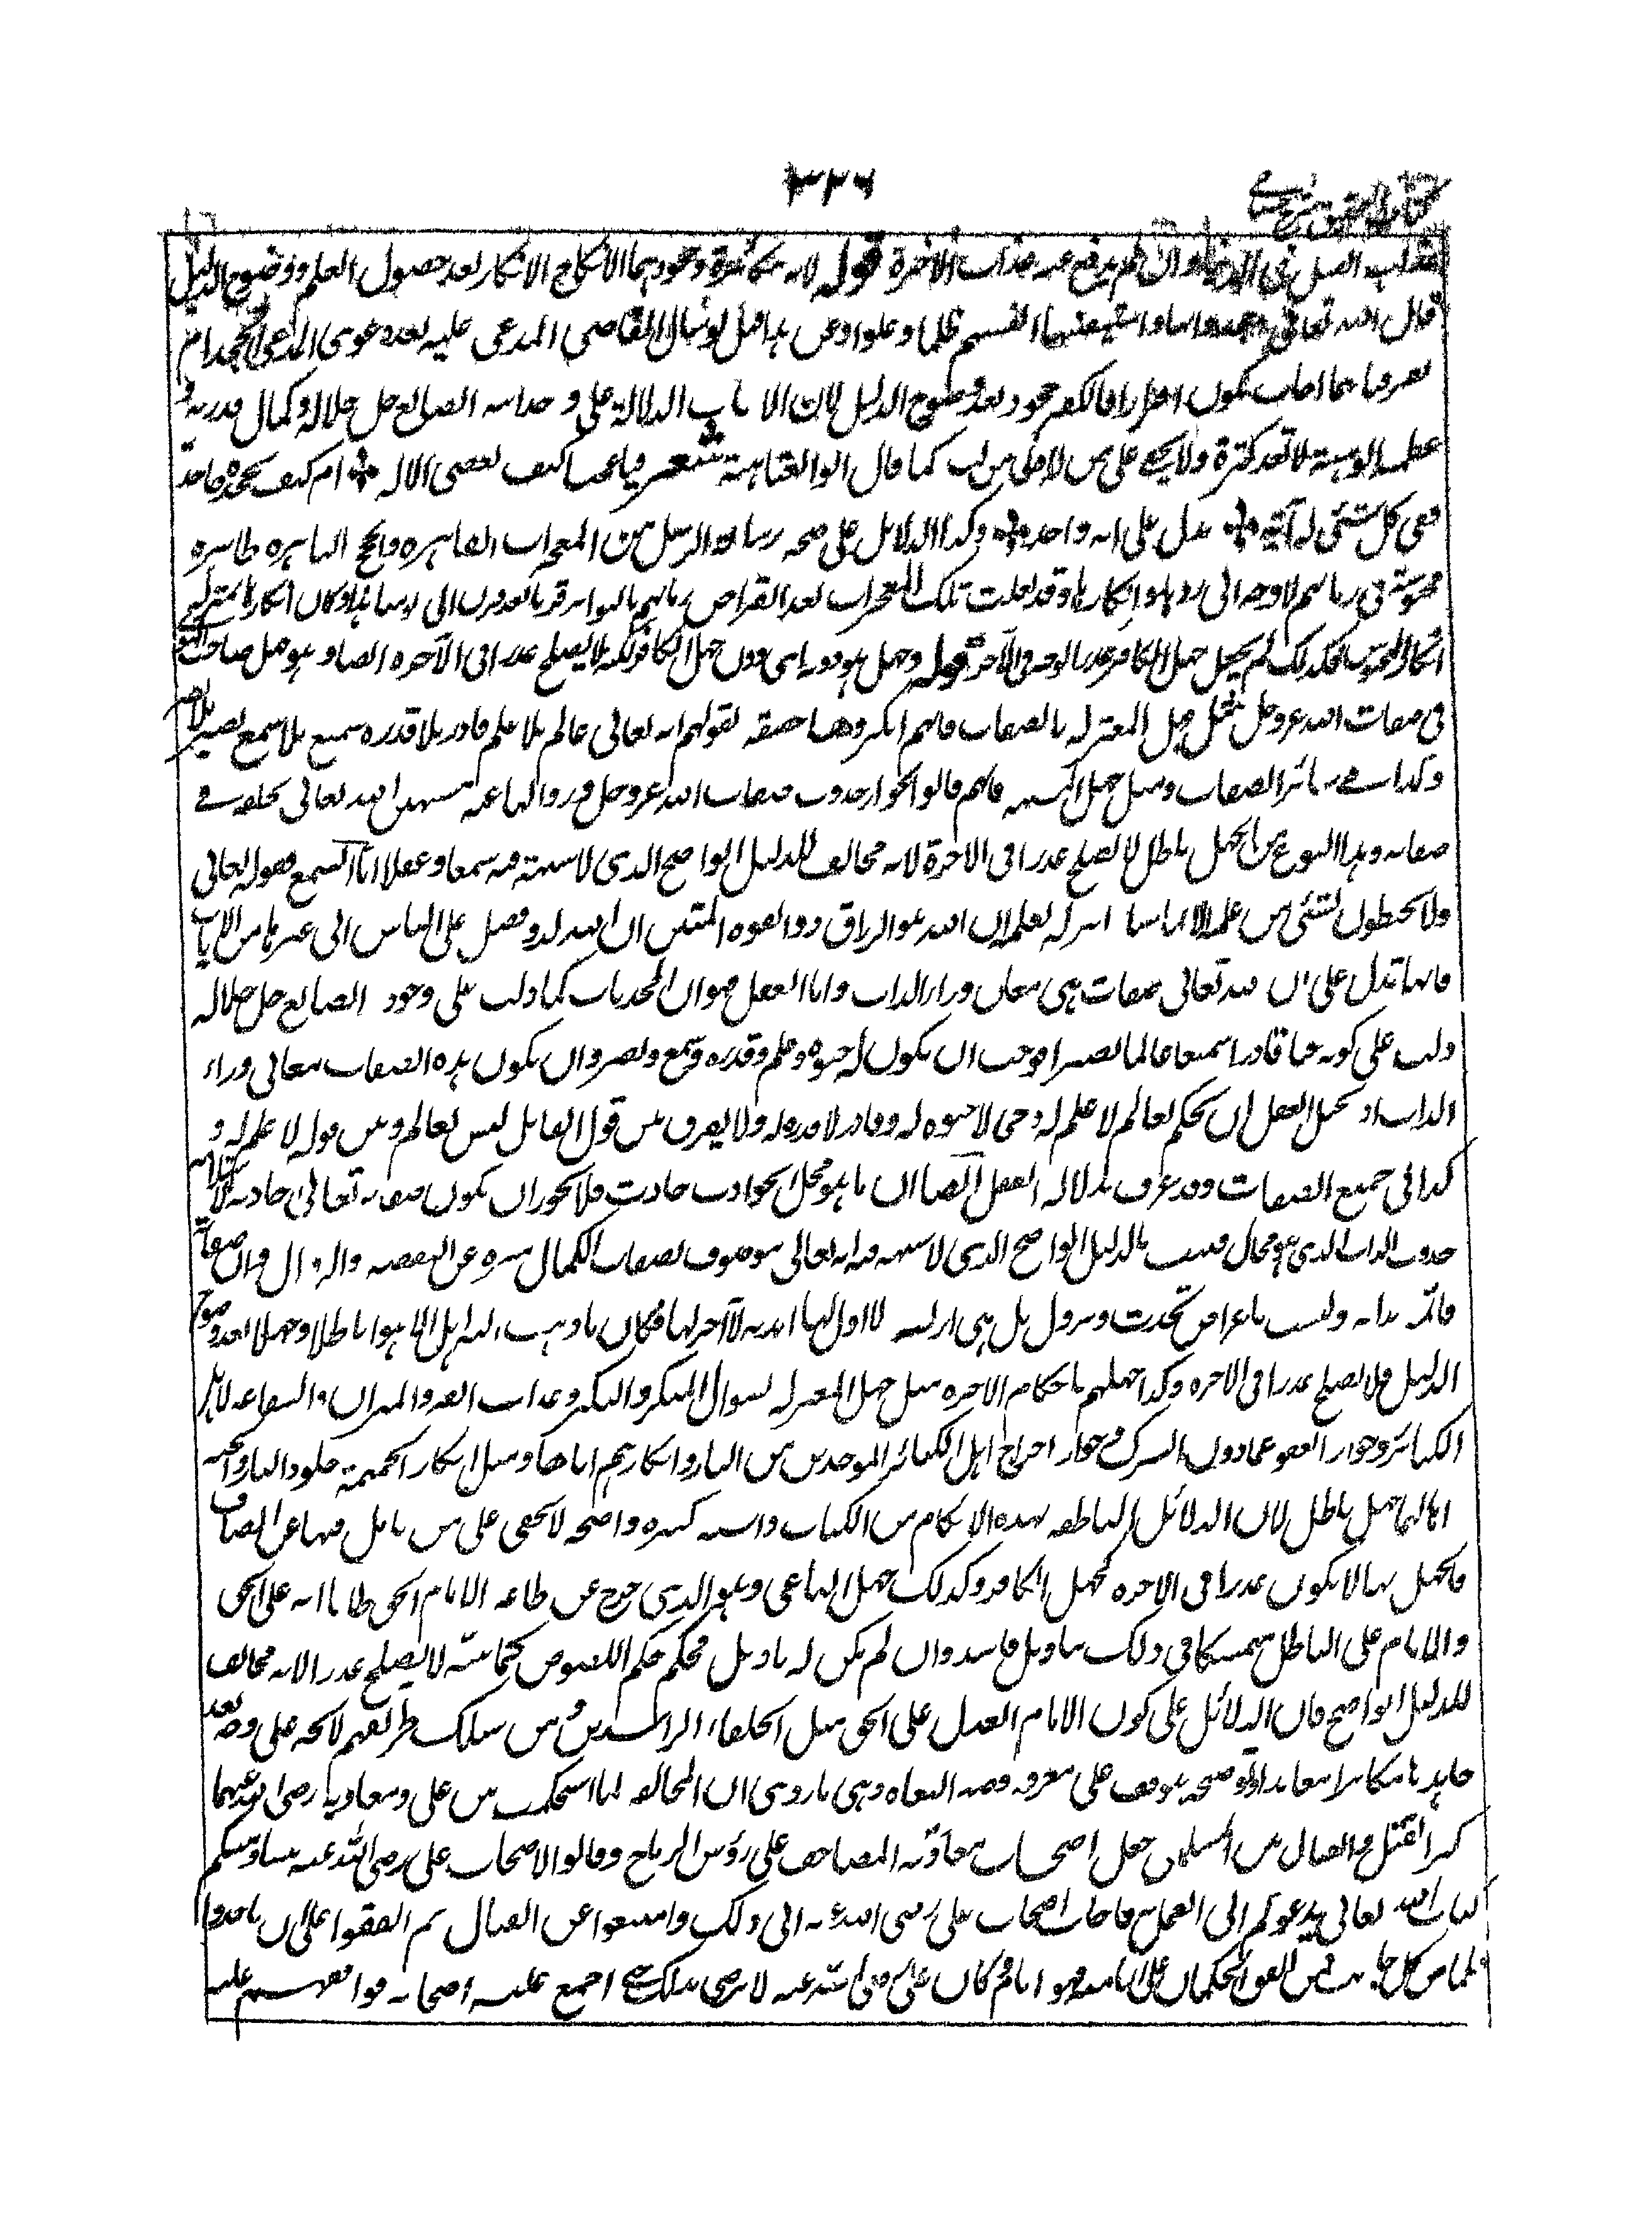 ٣٢٦
عذاب القتل فى الدنيا وان لم يدفع عنه عذاب الآخرة قوله لانه مكابرة وجحود بهما الانكار بعد حصول العلم ووضوح الدليل
قال الله تعالى وجحدوا بها واستيقنتها انفسهم ظلما وعلوا وعن هذا قيل لو سأل القاضى المدعى عليه بعد دعوى المدعى اتجحد ام
تقر فبايهما اجاب يكون اقرارا فالكفر جحود بعد وضوح الدليل لان الآيات الدالة على وحدانية الصانع جل جلاله وكمال قدرته و
عظم الوهيته لا تعد كثرة ولا يخفى على من لا ادنى من لب كما قال ابو العتاهية شعر فيا عجبا كيف يعصى الاله ام كيف يجحده جاحد
وفى كل شئى له آية تدل على انه واحد وكذا الدلائل على صحة رسالة الرسل من المعجزات القاهرة والحجج الباهرة ظاهرة
محسوسة فى زمانهم لا وجه الى ردها وانكارها وقد نقلت تلك المعجزات بعد انقراض زمانهم بالتواتر قرنا بعد قرن الى يومنا هذا وكان انكارها بمنزلة
انكار المحسوس فلذلك لم يجعل جهل الكافر عذرا بوجه فى الآخرة قوله وجهل هو دونه اى دون جهل الكافر لكنه لا يصلح عذرا فى الآخرة ايضا وهو جهل صاحب الهوى
فى صفات الله عز وجل مثل جهل المعتزلة بالصفات فانهم انكروها حقيقة لقولهم انه تعالى عالم بلا علم قادر بلا قدرة سميع بلا سمع بصير بلا بصر
وكذا فى سائر الصفات ومثل جهل المشبهة فانهم قالوا بجواز حدوث صفات الله عز وجل وزوالها عنه مشبهين الله تعالى بخلقه فى
صفاته وهذا النوع من الجهل باطل لا يصلح عذرا فى الآخرة لانه مخالف للدليل الواضح الذى لا شبهة فيه سمعا وعقلا اما السمع فقوله تعالى
ولا يحيطون بشئى من علمه الا بما شاء انزله بعلمه ان الله هو الرزاق ذو القوة المتين ان الله لذو فضل على الناس الى غيرها من الآيات
فانها تدل على ان لله تعالى صفات هى معان وراء الذات واما العقل فهو ان المحدثات كما دلت على وجود الصانع جل جلاله
دلت على كونه حيا قادرا سميعا عالما بصيرا فوجب ان يكون له حيوة وعلم وقدرة وسمع وبصر وان يكون هذه الصفات معانى وراء
الذات اذ يحيل العقل ان يحكم بعالم لا علم له وحى لا حيوة له وقادر لا قدرة له ولا يفرق بين قول القائل ليس بعالم وبين قوله لا علم له و
كذا فى جميع الصفات وقد عرف بدلالة العقل ايضا ان ما هو محل الحوادث حادث فلا يجوز ان يكون صفاته تعالى حادثة لاستلزامه
حدوث الذات الذى هو محال فثبت بالدليل الواضح الذى لا شبهة فيه انه تعالى موصوف بصفات الكمال منزه عن النقيصة والزوال وان صفاته
قائمة بذاته وليست باعراض تحدث وتزول بل هى ازلية لا اول لها ابدية لا آخر لها فكان ما ذهب اليه اهل الاهواء باطلا وجهلا بعد وضوح
الدليل فلا يصلح عذرا فى الآخرة وكذا جهلهم باحكام الآخرة مثل جهل المعتزلة بسوال المنكر والنكير وعذاب القبر والميزان والشفاعة لاهل
الكبائر وجواز العفو عما دون الشرك وجواز اخراج اهل الكبائر الموحدين من النار وانكارهم اياها ومثل انكار الجهمية خلود النار والجنة
اهاليها جهل باطل لان الدلائل الناطقة بهذه الاحكام من الكتاب والسنة كثيرة واضحة لا يخفى على من تامل فيها عن انصاف
فالجهل بها لا يكون عذرا فى الآخرة كجهل الكافر وكذلك جهل الباغى وهو الذى خرج عن طاعة الامام الحق ظانا انه على الحق
والامام على الباطل متمسكا فى ذلك بتاويل فاسد وان لم يكن له تاويل فحكمه حكم اللصوص لا يصلح عذرا لانه مخالف
للدليل الواضح فان الدلائل على كون الامام العدل على الحق مثل الخلفاء الراشدين ومن سلك طريقهم لائحة على وجه يعد
جاحدها مكابرا معاندا وتوضيحه يتوقف على معرفة قصة البغاة وهى ما روى ان المخالفة لما استحكمت بين على ومعاوية رضى الله عنهما
كثر القتل والقتال بين المسلمين جعل اصحاب معاوية المصاحف على رؤس الرماح وقالوا لاصحاب على رضى الله عنه بيننا وبينكم
كتاب الله تعالى يدعوكم الى العمل به فاجاب اصحاب على رضى الله عنه الى ذلك وامتنعوا عن القتال ثم اتفقوا على ان ياخذوا
حكما من كل جانب فمن اتفق الحكمان على امامته فهو امام وكان على رضى الله عنه لا يرضى بذلك حتى اجتمع عليه اصحابه فوافقهم عليه